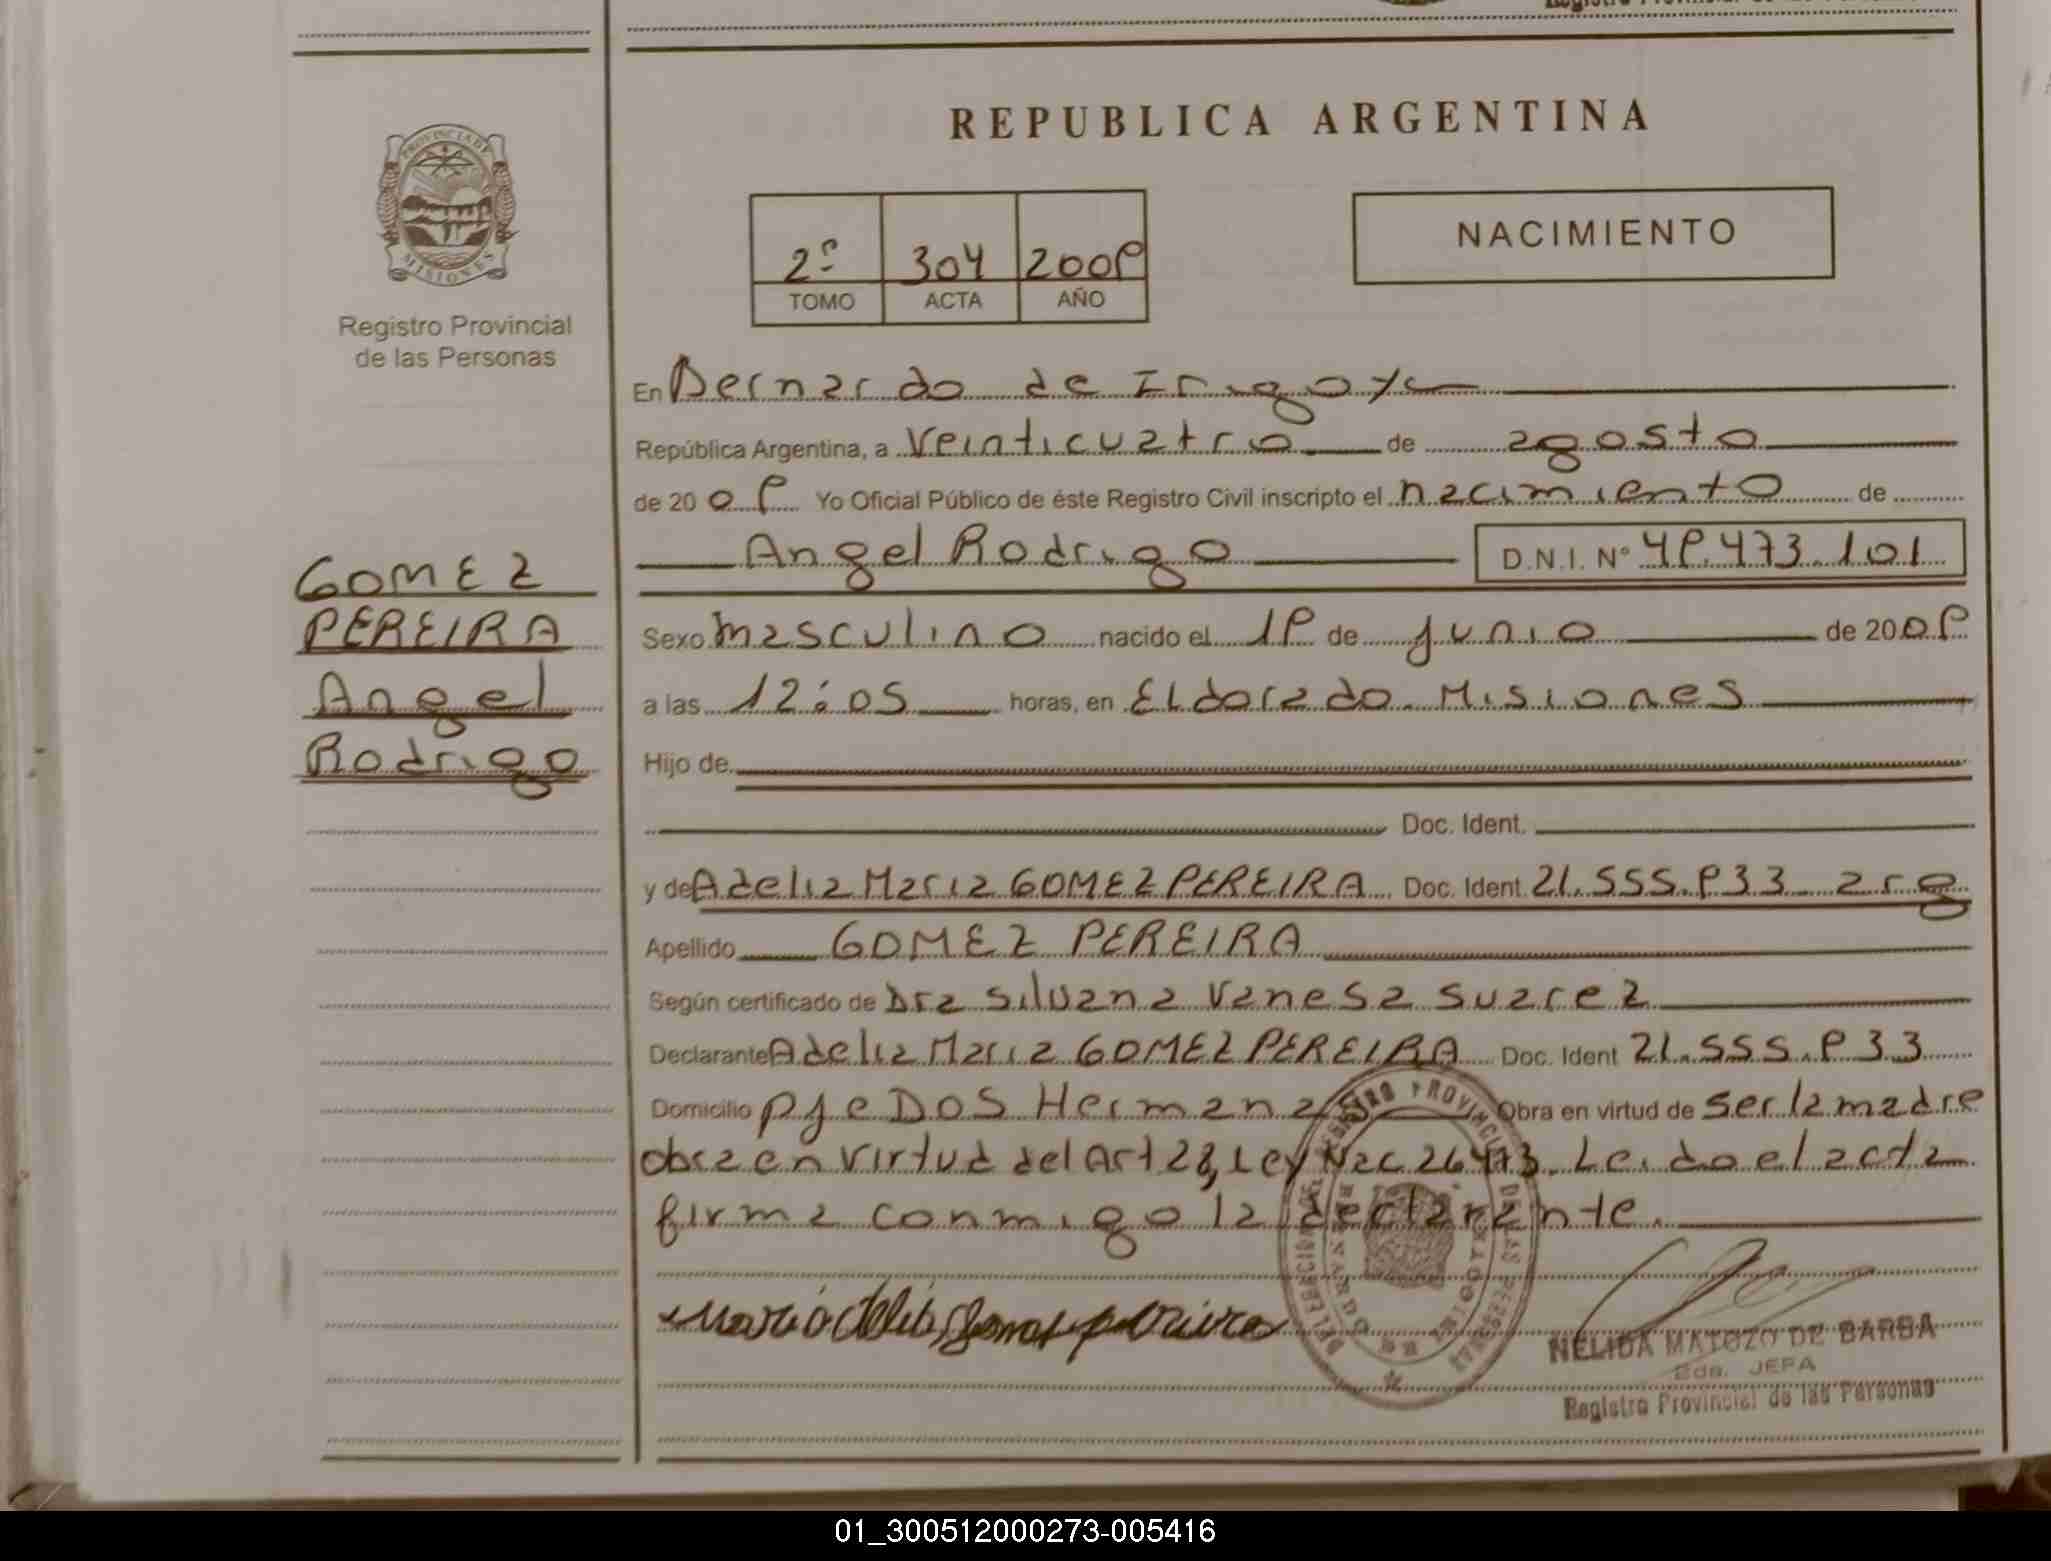 REPUBLICA ARGENTINA
PROVINCIA DE MISIONES
Registro Provincial
de las Personas
2º 304 2009
TOMO ACTA AÑO
NACIMIENTO
En Bernardo de Irigoye
República Argentina, a Veinticuatro de agosto
de 2009 Yo Oficial Público de éste Registro Civil inscripto el nacimiento de
Angel Rodrigo D.N.I. Nº 49.473.101
GOMEZ
PEREIRA
Angel
Rodrigo
Sexo masculino nacido el 19 de junio de 2009
a las 12:05 horas, en Eldorado. Misiones
Hijo de
Doc. Ident.
y de Adelia Maria GOMEZ PEREIRA Doc. Ident. 21.555.933 arg
Apellido GOMEZ PEREIRA
Según certificado de Dra Silvana Vanesa Suarez
Declarante Adelia Maria GOMEZ PEREIRA Doc. Ident 21.555.933
Domicilio pje DOS Hermanas Obra en virtud de ser la madre
obra en virtud del Art 28, Ley Nac 26413. Leido el acta
firma conmigo la declarante.
NELIDA MATOZO DE BARBA
2da. JEFA
Registro Provincial de las Personas
01_300512000273-005416